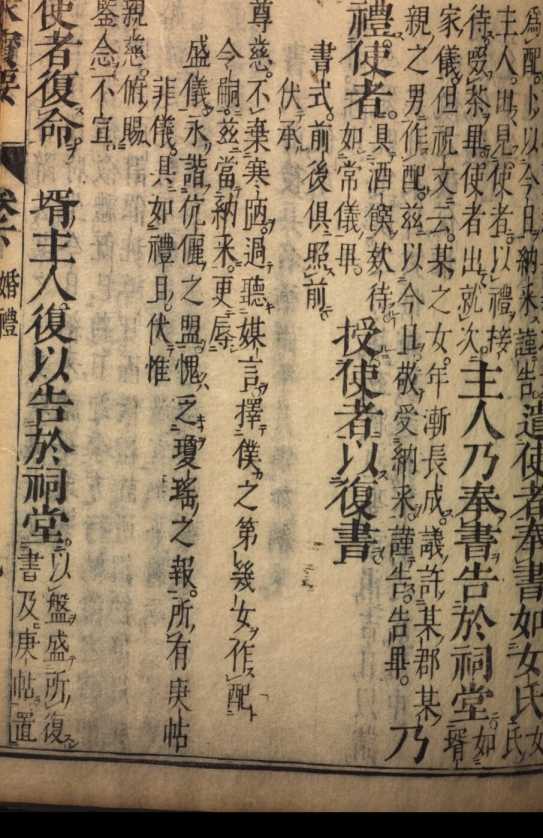 爲配。卜以今日納采。謹告。遣使者奉書如女氏女
氏
主人。出見使者。以禮接
待。啜茶畢。使者出就次。主人乃奉書告於祠堂如
壻
家儀。但祝文云。某之女。年漸長成。議許某郡某
親之男作配。茲以今日敬受納采。謹告。告畢。乃
禮使者。具酒饌欵待
如常儀畢。授使者以復書
書式。前後俱照前。
伏承
尊慈。不棄寒陋。過聽媒言。擇僕之第幾女作配
令嗣。茲當納采。更辱
盛儀。永諧伉儷之盟。愧乏瓊瑤之報。所有庚帖
菲儀。具如禮目。伏惟
親慈。俯賜
鑒念。不宣
使者復命 壻主人復以告於祠堂。以盤盛所復
書及庚帖置
婚禮